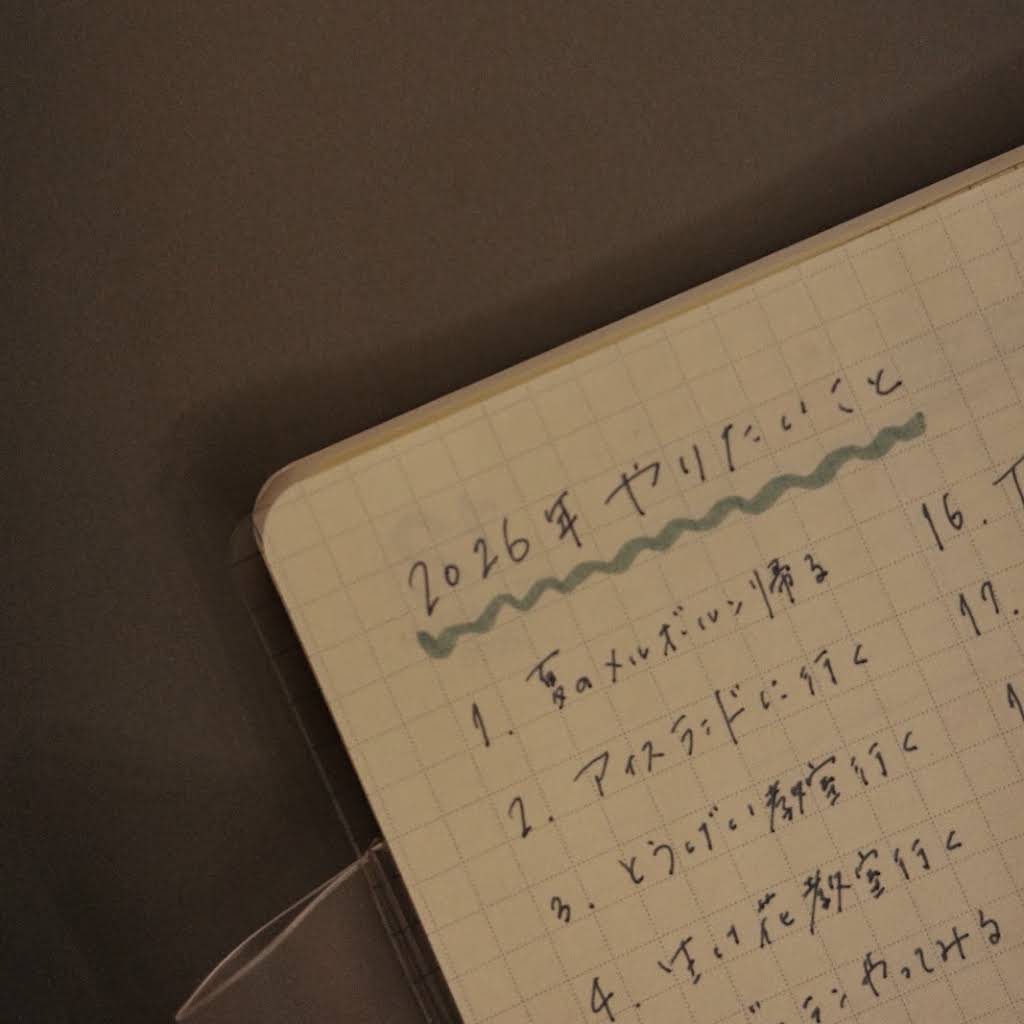 2026年 やりたいこと
1. 夏のメルボルン帰る
2. アイスランドに行く
3. とうげい教室行く
4. 生け花教室行く
ランやってみる
16.
17.
1